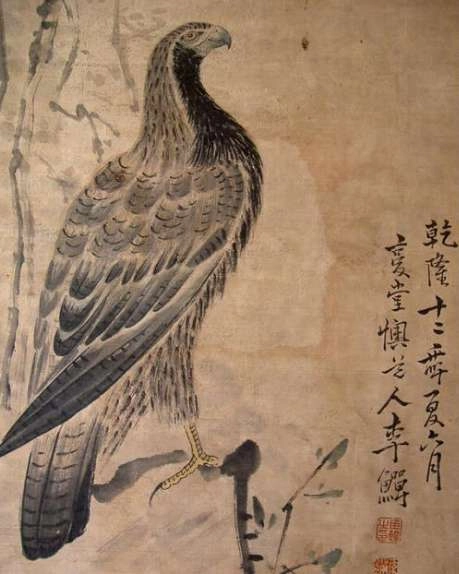 乾隆十二年夏六月
复堂懊道人李鱓